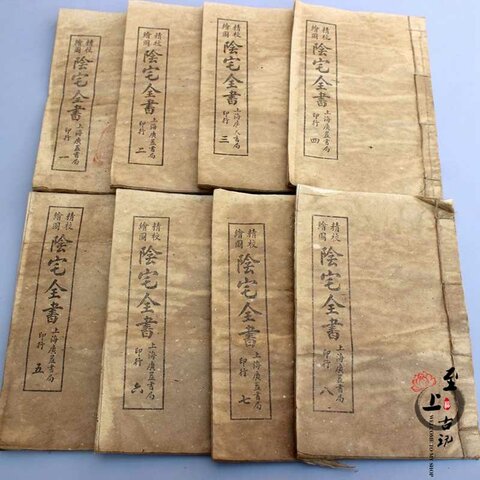 精校
繪圖
陰宅全書
上海廣益書局
印行
一
精校
繪圖
陰宅全書
上海廣益書局
印行
二
精校
繪圖
陰宅全書
上海廣益書局
印行
三
精校
繪圖
陰宅全書
上海廣益書局
印行
四
精校
繪圖
陰宅全書
上海廣益書局
印行
五
精校
繪圖
陰宅全書
上海廣益書局
印行
六
精校
繪圖
陰宅全書
上海廣益書局
印行
七
精校
繪圖
陰宅全書
上海廣益書局
印行
八
至上古玩
WELCOME TO MY SHOP